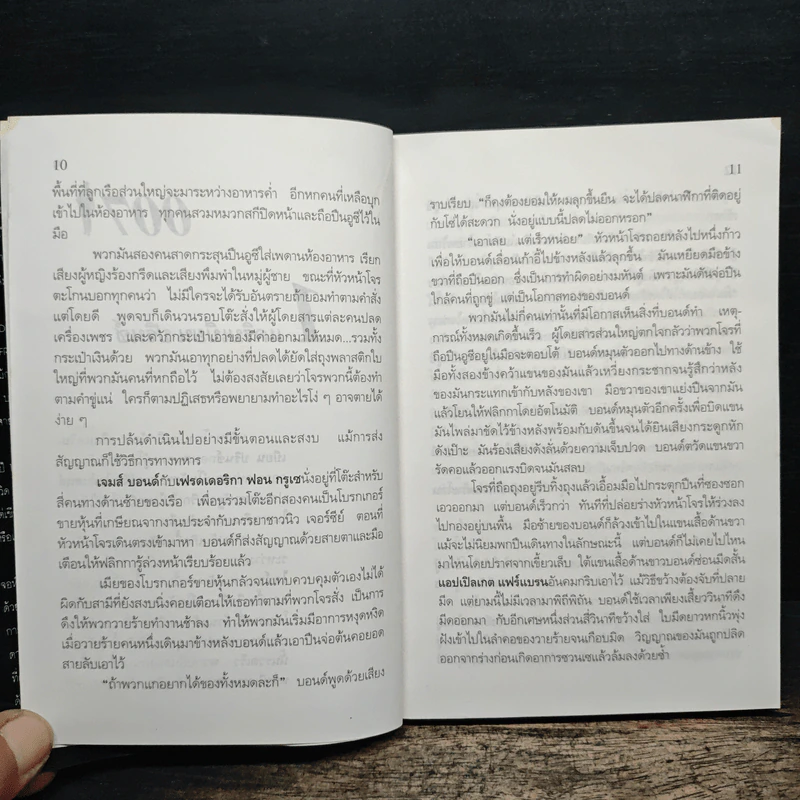 10
พื้นที่ที่ลูกเรือส่วนใหญ่จะมาระหว่างอาหารค่ำ อีกหกคนที่เหลือบุก
เข้าไปในห้องอาหาร ทุกคนสวมหมวกสกีปิดหน้าและถือปืนอูซี่ไว้ใน
มือ
พวกมันสองคนสาดกระสุนปืนอูซี่ใส่เพดานห้องอาหาร เรียก
เสียงผู้หญิงร้องกรีดและเสียงพึมพำในหมู่ผู้ชาย ขณะที่หัวหน้าโจร
ตะโกนบอกทุกคนว่า ไม่มีใครจะได้รับอันตรายถ้ายอมทำตามคำสั่ง
แต่โดยดี พูดจบก็เดินวนรอบโต๊ะสั่งให้ผู้โดยสารแต่ละคนปลด
เครื่องเพชร และควักกระเป๋าเอาของมีค่าออกมาให้หมด...รวมทั้ง
กระเป๋าเงินด้วย พวกมันเอาทุกอย่างที่ปลดได้ยัดใส่ถุงพลาสติกใบ
ใหญ่ที่พวกมันคนที่หกถือไว้ ไม่ต้องสงสัยเลยว่าโจรพวกนี้ต้องทำ
ตามคำขู่แน่ ใครก็ตามปฏิเสธหรือพยายามทำอะไรโง่ ๆ อาจตายได้
ง่าย ๆ
การปล้นดำเนินไปอย่างมีขั้นตอนและสงบ แม้การส่ง
สัญญาณก็ใช้วิธีการทางทหาร
เจมส์ บอนด์กับเฟรดเดอริกา ฟอน กรูเซนั่งอยู่ที่โต๊ะสำหรับ
สี่คนทางด้านซ้ายของเรือ เพื่อนร่วมโต๊ะอีกสองคนเป็นโบรกเกอร์
ขายหุ้นที่เกษียณจากงานประจำกับภรรยาชาวนิว เจอร์ซีย์ ตอนที่
หัวหน้าโจรเดินตรงเข้ามาหา บอนด์ก็ส่งสัญญาณด้วยสายตาและมือ
เตือนให้ฟลิกการู้ล่วงหน้าเรียบร้อยแล้ว
เมียของโบรกเกอร์ขายหุ้นกลัวจนแทบควบคุมตัวเองไม่ได้
ผิดกับสามีที่ยังสงบนิ่งคอยเตือนให้เธอทำตามที่พวกโจรสั่ง เป็นการ
ดึงให้พวกวายร้ายทำงานช้าลง ทำให้พวกมันเริ่มมีอาการหงุดหงิด
เมื่อวายร้ายคนหนึ่งเดินมาข้างหลังบอนด์แล้วเอาปืนจ่อต้นคอยอด
สายลับเอาไว้
"ถ้าพวกแกอยากได้ของทั้งหมดละก็" บอนด์พูดด้วยเสียง
11
ราบเรียบ "ก็คงต้องยอมให้ผมลุกขึ้นยืน จะได้ปลดนาฬิกาที่ติดอยู่
กับโซ่ได้สะดวก นั่งอยู่แบบนี้ปลดไม่ออกหรอก"
"เอาเลย แต่เร็วหน่อย" หัวหน้าโจรถอยหลังไปหนึ่งก้าว
เพื่อให้บอนด์เลื่อนเก้าอี้ไปข้างหลังแล้วลุกขึ้น มันเหยียดมือข้าง
ขวาที่ถือปืนออก ซึ่งเป็นการทำผิดอย่างมหันต์ เพราะมันดันจ่อปืน
ใกล้คนที่ถูกขู่ แต่เป็นโอกาสทองของบอนด์
พวกมันไม่กี่คนเท่านั้นที่มีโอกาสเห็นสิ่งที่บอนด์ทำ เหตุ-
การณ์ทั้งหมดเกิดขึ้นเร็ว ผู้โดยสารส่วนใหญ่ตกใจกลัวว่าพวกโจรที่
ถือปืนอูซี่อยู่ในมือจะตอบโต้ บอนด์หมุนตัวออกไปทางด้านข้าง ใช้
มือทั้งสองข้างคว้าแขนของมันแล้วเหวี่ยงกระชากจนรู้สึกว่าหลัง
ของมันกระแทกเข้ากับหลังของเขา มือขวาของเขาแย่งปืนจากมัน
แล้วโยนให้ฟลิกกาโดยอัตโนมัติ บอนด์หมุนตัวอีกครั้งเพื่อบิดแขน
มันไพล่มาชิดไว้ข้างหลังพร้อมกับดันขึ้นจนได้ยินเสียงกระดูกหัก
ดังเป๊าะ มันร้องเสียงดังลั่นด้วยความเจ็บปวด บอนด์ตวัดแขนขวา
รัดคอแล้วออกแรงบิดจนมันสลบ
โจรที่ถือถุงอยู่รีบทิ้งถุงแล้วเอื้อมมือไปกระตุกปืนที่ซองซอก
เอวออกมา แต่บอนด์เร็วกว่า ทันทีที่ปล่อยร่างหัวหน้าโจรให้ร่วงลง
ไปกองอยู่บนพื้น มือซ้ายของบอนด์ก็ล้วงเข้าไปในแขนเสื้อด้านขวา
แม้จะไม่นิยมพกปืนเดินทางในลักษณะนี้ แต่บอนด์ก็ไม่เคยไปไหน
มาไหนโดยปราศจากเขี้ยวเล็บ ใต้แขนเสื้อด้านขวาบอนด์ซ่อนมีดสั้น
แอปเปิลเกต แฟร์แบรนอันคมกริบเอาไว้ แม้วิธีขว้างต้องจับที่ปลาย
มีด แต่ยามนี้ไม่มีเวลามาพิถีพิถัน บอนด์ใช้เวลาเพียงเสี้ยววินาทีดึง
มีดออกมา กับอีกเศษหนึ่งส่วนสี่วินาทีขว้างใส่ ใบมีดยาวหกนิ้วพุ่ง
ฝังเข้าไปในลำคอของวายร้ายจนเกือบมิด วิญญาณของมันถูกปลิด
ออกจากร่างก่อนเกิดอาการซวนเซแล้วล้มลงด้วยซ้ำ